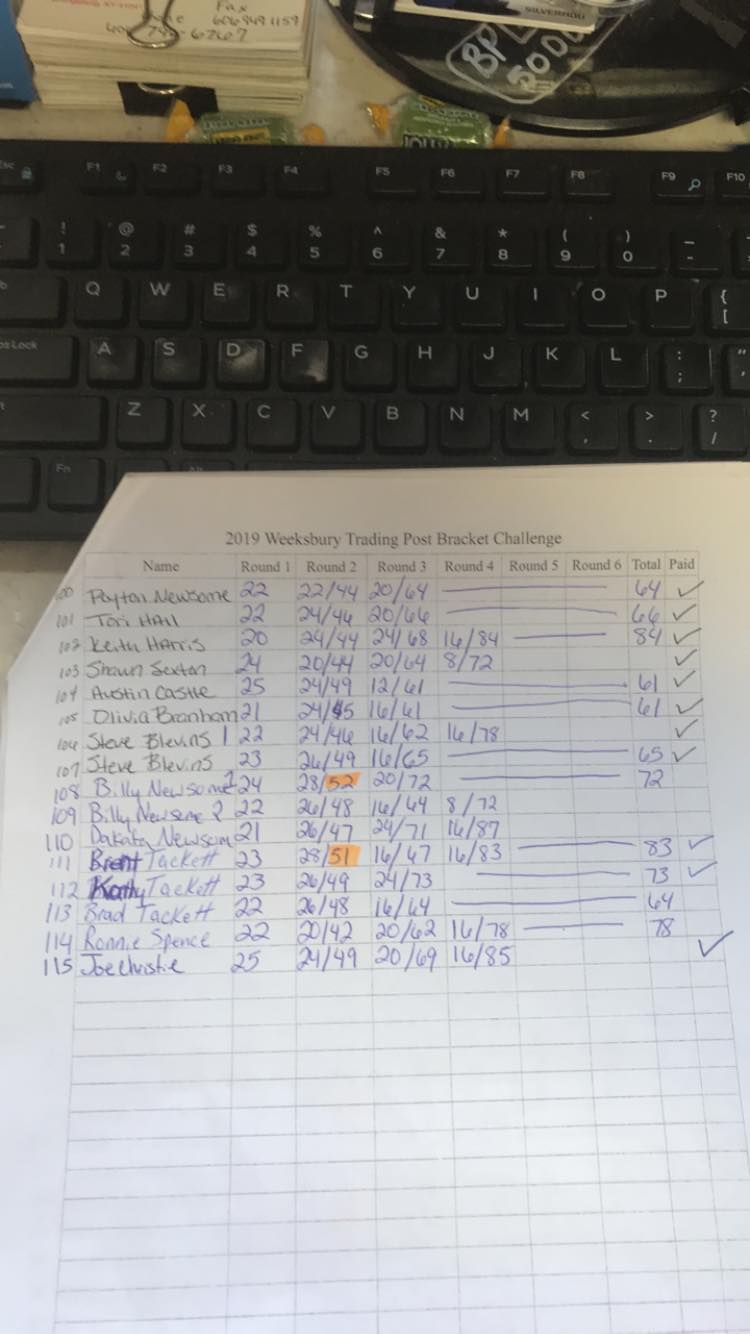 Fax
606 849 1159
-6267
SILVERADO
BP
500
JOLLY
Esc F1 F2 F3 F4 F5 F6 F7 F8 F9 F10
! @ # $ % ^ & * ( ) _
1 2 3 4 5 6 7 8 9 0 -
Q W E R T Y U I O P { [
Lock A S D F G H J K L : ; "
Z X C V B N M < , > . ? /
Fn Alt
2019 Weeksbury Trading Post Bracket Challenge
Name Round 1 Round 2 Round 3 Round 4 Round 5 Round 6 Total Paid
00 Peyton Newsome 22 22/44 20/64 64 ✓
101 Tori Hall 22 24/46 20/66 66 ✓
102 Keith Harris 20 24/44 24/68 16/84 84 ✓
103 Shawn Sexton 24 20/44 20/64 8/72 ✓
104 Austin Castle 25 24/49 12/61 61 ✓
105 Olivia Branham 21 24/45 16/61 61 ✓
106 Steve Blevins 1 22 24/46 16/62 16/78 ✓
107 Steve Blevins 23 26/49 16/65 65 ✓
108 Billy Newsome 24 28/52 20/72 72
109 Billy Newsome 2 22 26/48 16/64 8/72
110 Dakota Newsom 21 26/47 24/71 16/87
111 Brent Tackett 23 28/51 16/67 16/83 83 ✓
112 Kathy Tackett 23 26/49 24/73 73 ✓
113 Brad Tackett 22 26/48 16/64 64
114 Ronnie Spence 22 20/42 20/62 16/78 78
115 Joe Christie 25 24/49 20/69 16/85 ✓